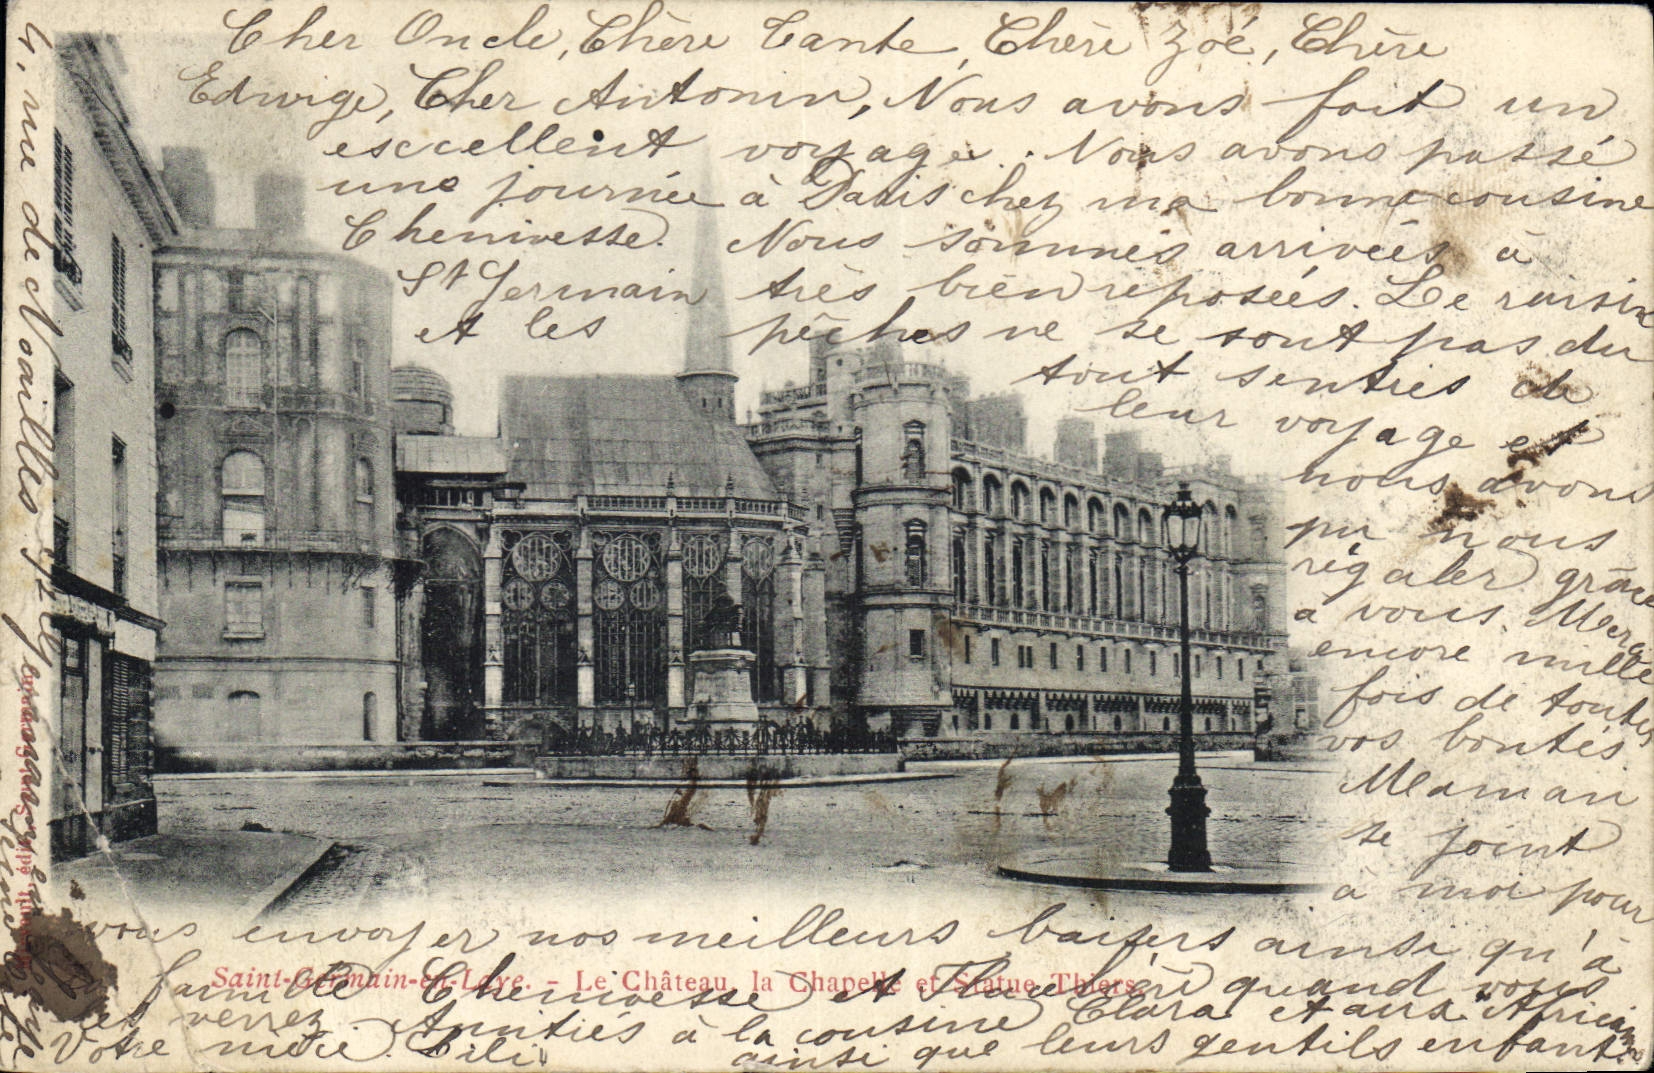 Cher Oncle, Chère Tante, Chère Zoé, Chère
Edwige, Cher Antonin, Nous avons fait un
excellent voyage. Nous avons passé
une journée à Paris chez ma bonne cousine
Chenivesse. Nous sommes arrivées à
St Germain très bien reposées. Le raisin
et les pêches ne se sont pas du
tout senties de
leur voyage et
nous avons
pu nous
régaler grâce
à vous. Merci
encore mille
fois de toutes
vos bontés.
Maman
se joint
à moi pour
vous envoyer nos meilleurs baisers ainsi qu'à
famille Chenivesse et quand vous
les verrez. Amitiés à la cousine Clara et aux Africains
ainsi que leurs gentils enfants.
Votre nièce. Lili.
4, rue de Noailles St Germain en Laye
Saint-Germain-en-Laye. - Le Château, la Chapelle et Statue Thiers
édit. Saint-Germain